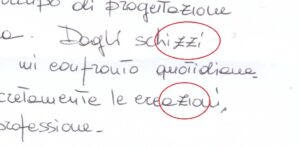 campo di progettazione
a. Dagli schizzi
mi confronto quotidiana
cretamente le creazioni,
professione.